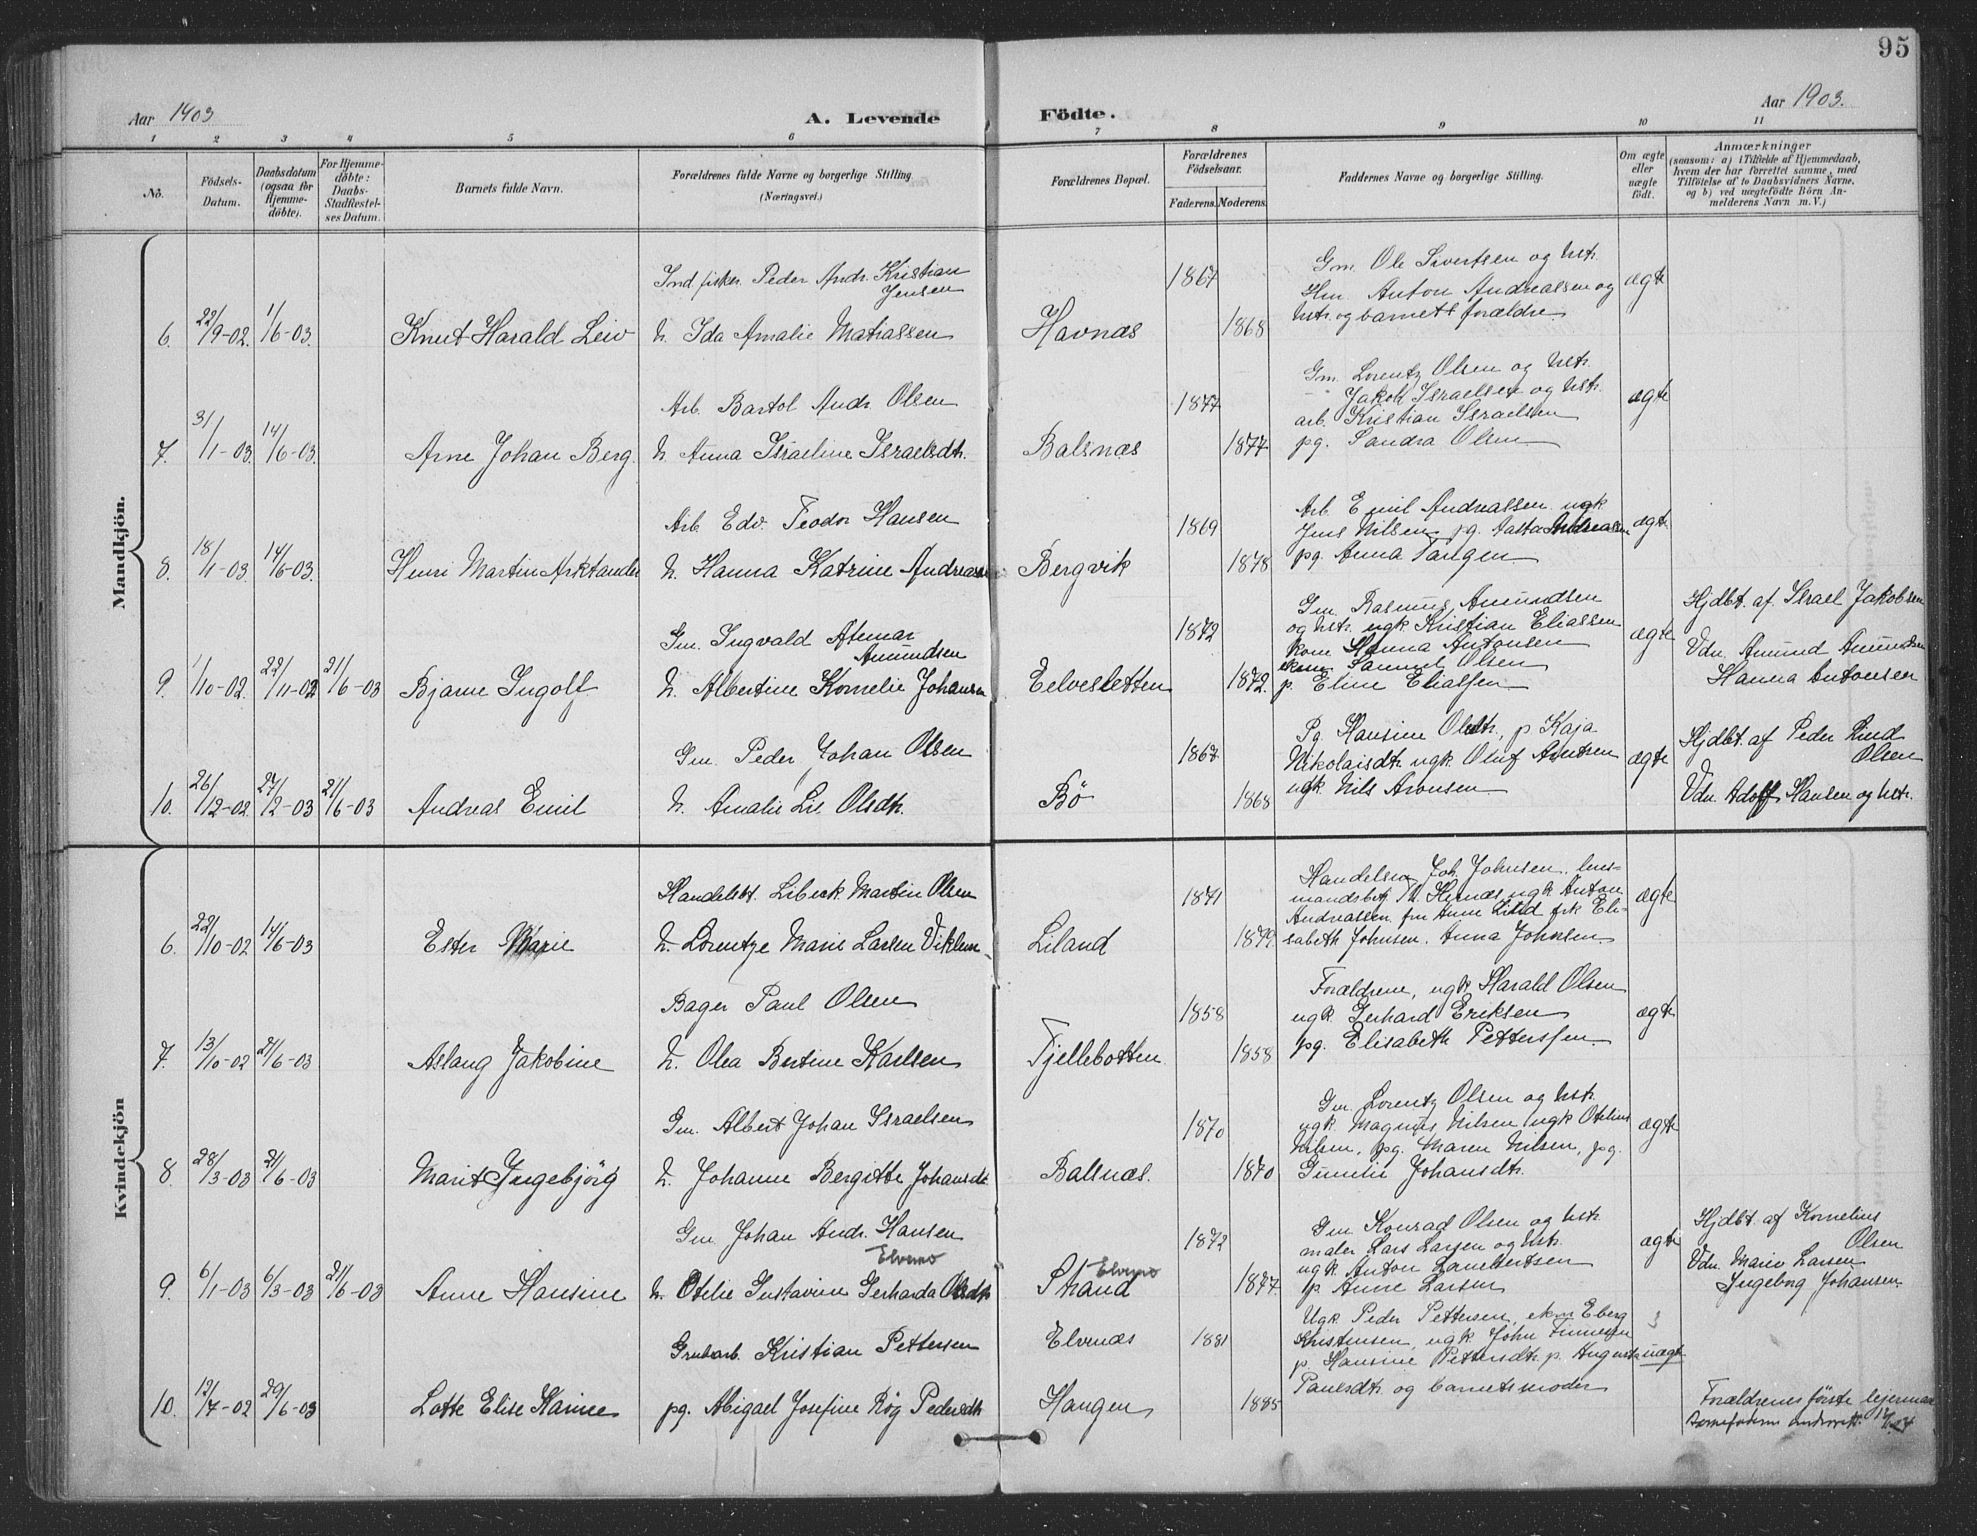 95
Aar 1903
A. Levende
Födte.
Aar 1903.
1 2 3 4 5 6 7 8 9 10 11
No.
Födsels-
Datum.
Daabsdatum
(ogsaa for
Hjemme-
döbte).
For Hjemme-
döbte:
Daabs-
Stadfæstel-
ses Datum.
Barnets fulde Navn.
Forældrenes fulde Navne og borgerlige Stilling
(Næringsvei.)
Forældrenes Bopæl.
Forældrenes
Födselsaar.
Faderens. Moderens.
Faddernes Navne og borgerlige Stilling.
Om ægte
eller
uægte
födt.
Anmærkninger
(saasom: a) i Tilfælde af Hjemmedaab,
hvem der har forrettet samme, med
Tilföielse af to Daabsvidners Navne,
og b) ved uægtefödte Börn An-
melderens Navn m. V.)
Mandkjön.
6. 22/9-02. 1/6-03. Knut Harald Leiv
Ind fisker Peder Andr. Kristian
Jensen
H. Ida Amalie Matiassen
Havnæs
1867
1868
Gm. Ole Sivertsen og hstr.
Hm. Anton Andreassen og
hstr. og barnets forældre.
ægte
7. 31/1-03. 14/6-03. Arne Johan Berg.
Arb. Bartol Andr. Olsen
H. Anna Israeline Israelsdtr.
Balsnæs
1877
1877
Gm. Lorentz Olsen og hstr.
" Jakob Israelsen og hstr.
arb. Kristian Israelsen
pg. Sandra Olsen
ægte
8. 18/4-03. 14/6-03. Henri Martin Arktander
Arb. Edv. Teodor Hansen
H. Hanna Katrine Andreassen
Bergvik
1869
1878
Arb. Emil Andreassen ugk
Jens Nilsen pg. Aasta Andreassen
pg. Anna Tangen
ægte
9. 1/10-02. 22/11-02 21/6-03 Bjarne Ingolf
Gm. Ingvald Atemar
Amundsen
H. Albertine Kornelie Johansen
Eelvesletten
1872
1872.
Gm. Rasmus Amundsen
og hstr. ugk. Kristian Eliassen
kone Hanna Antonsen
ekm Samuel Olsen
p. Eline Eliassen
ægte
Hjdbt. af Israel Jakobsen
Vdn. Amund Amundsen
Hanna Antonsen
10. 26/12-02. 27/12-03 21/6-03 Andreas Emil
Gm. Peder Johan Olsen
H. Amalie Lis. Olsdtr.
Bö
1867
1868
Pg. Hansine Olsdtr., p Kaja
Nikolaisdtr. ugk. Oluf Arntsen
ugk Nils Aronsen
ægte
Hjdbt. af Peder Lind
Olsen
Vdn. Adolf Hansen og hstr.
Kvindekjön
6. 22/10-02 14/6-03 Ester Marie
Handelsbt. Libeck Martin Olsen
H. Lorentze Marie Larsen Viklem
Liland
1871
1879
Handelsm Joh. Johnsen, lens-
mandsbetj. M. Hernæs, ugk Anton
Andreassen fru Anne Lind frk Eli-
sabeth Johnsen. Anna Johnsen
ægte
7. 13/10-02 21/6-03 Aslaug Jakobine
Bager Paul Olsen
H. Olea Bertine Karlsen
Fjellebotten
1858
1858
Forældrene, ugk. Harald Olsen
ugk. Gerhard Eriksen
pg. Elisabeth Pettersen.
ægte
8. 28/3-03 21/6-03 Marit Ingebjörg
Gm. Albert Johan Israelsen
H. Johanne Bergitte Johansdtr.
Balsnæs.
1870
1870
Gm. Lorentz Olsen og hstr.
ugk. Magnus Nilsen ugk Otelius
Nilsen, pg. Maren Nilsen, pg.
Gunelie Johansdtr.
ægte
9. 6/1-03 6/3-03 21/6-03 Anne Hansine
Gm. Johan Andr. Hansen
Elvemo
H. Otelie Gustavine Gerharda Olsdtr
Strand
Elvemo
1872
1877
Gm Konrad Olsen og hstr.
maler Lars Larsen og hstr.
ugk. Anton Lambertsen
p. Anne Larsen
ægte
Hjdbt. af Kornelius
Olsen
Vdn. Marie Larsen
Ingeborg Johansen.
10. 12/7-02 29/6-03 Lotte Elise Karine
Grubarb. Kristian Pettersen
pg. Abigael Josefine Røg Pedersdtr
Elvenæs
Hangen
1881
1885
Ugk Peder Pettersen, ekm Eberg
Kristensen, ugk John
p. Hansine Pettersdtr. p. Auguste
Paulsdtr. og barnets moder
uægte
Forældrenes förste leiermaal